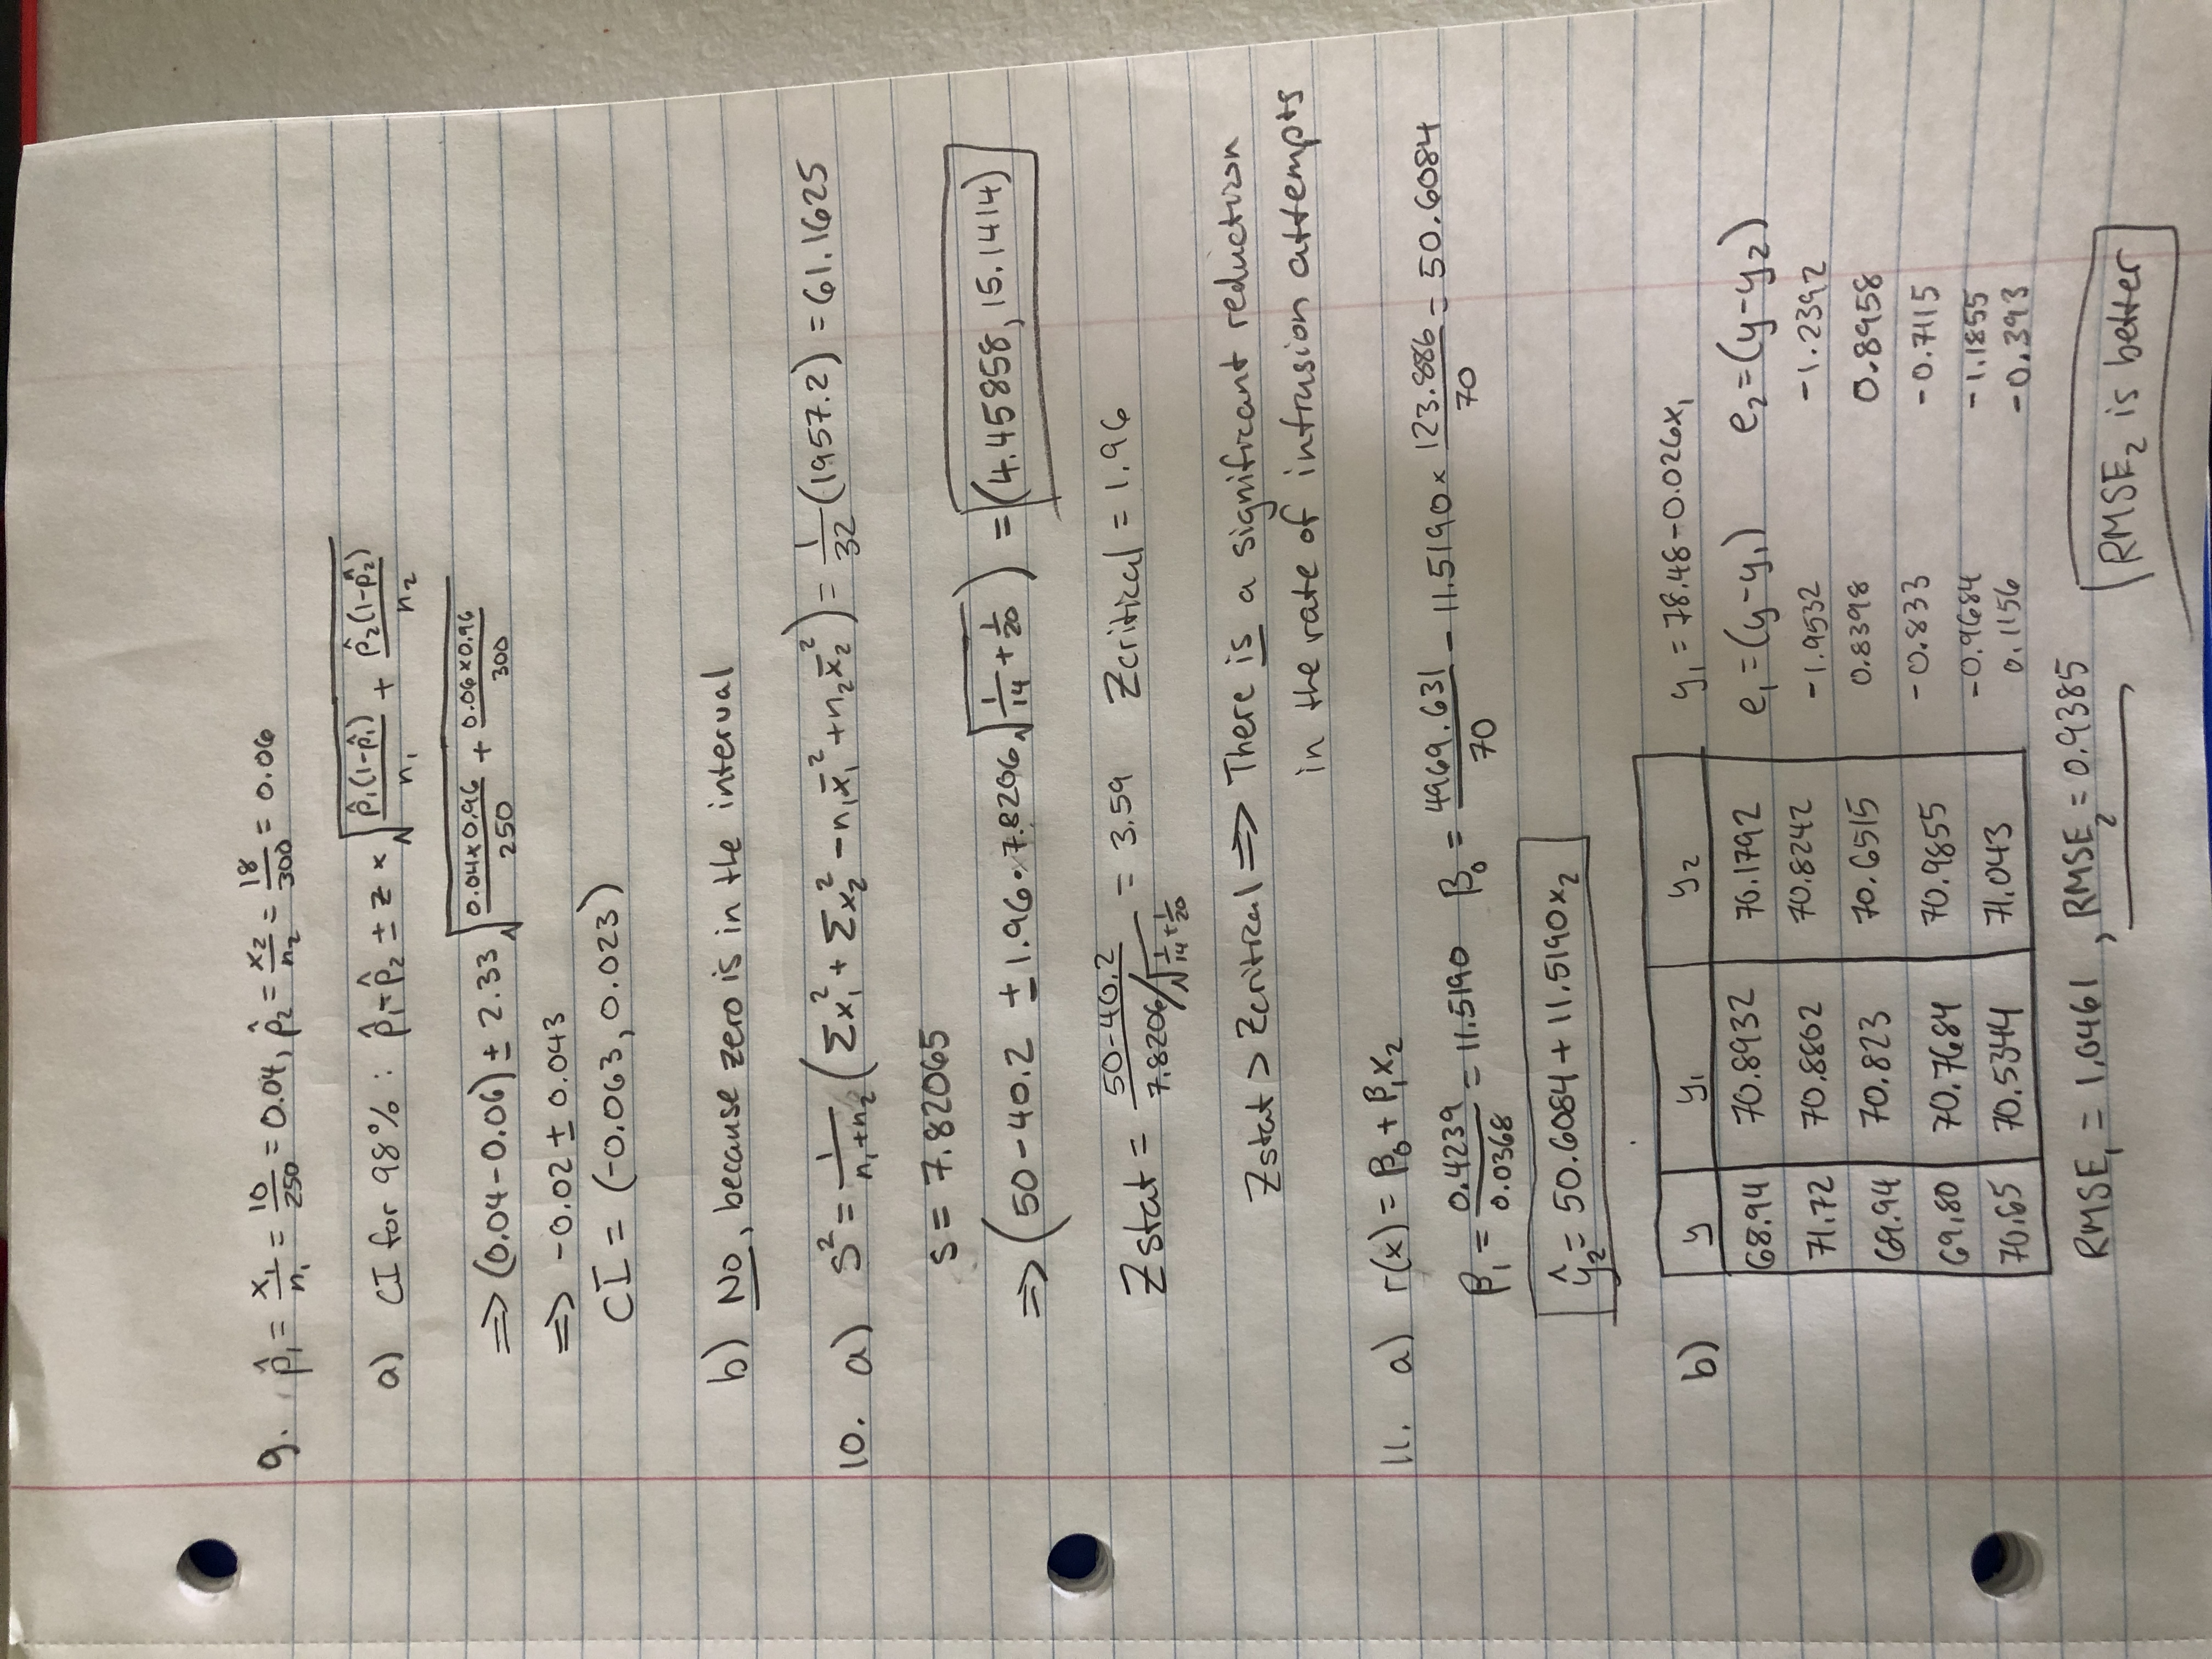 9. p̂₁ = x₁/n₁ = 10/250 = 0.04, p̂₂ = x₂/n₂ = 18/300 = 0.06
a) CI for 98% : p̂₁-p̂₂ ± z × √(p̂₁(1-p̂₁)/n₁ + p̂₂(1-p̂₂)/n₂)
⟹ (0.04-0.06) ± 2.33 √(0.04×0.96/250 + 0.06×0.96/300)
⟹ -0.02 ± 0.043
CI = (-0.063, 0.023)
b) No, because zero is in the interval
10. a) S² = 1/(n₁+n₂) (Σx₁² + Σx₂² - n₁x̄₁² + n₂x̄₂²) = 1/32 (1957.2) = 61.1625
s = 7.82065
⟹ (50-40.2 ± 1.96 · 7.8206 √(1/14 + 1/20)) = (4.45858, 15.1414)
Zstat = (50-40.2)/(7.8206/√(1/14+1/20)) = 3.59 Zcritical = 1.96
Zstat > Zcritical ⟹ There is a significant reduction
in the rate of intrusion attempts
11. a) r(x) = β₀ + β₁x₂
β₁ = 0.4239/0.0368 = 11.5190 β₀ = 4969.631/70 - 11.5190 × 123.886/70 = 50.6084
ŷ₂ = 50.6084 + 11.5190x₂
b) y y₁ y₂ y₁ = 78.48-0.026x₁
68.94 70.8932 70.1792 e₁=(y-y₁) e₂=(y-y₂)
71.72 70.8802 70.8242 -1.9532 -1.2392
69.94 70.823 70.6515 0.8398 0.8958
69.80 70.7684 70.9855 -0.833 -0.7115
70.65 70.5344 71.043 -0.9684 -1.1855
0.1156 -0.393
RMSE₁ = 1.0461, RMSE₂ = 0.9385
RMSE₂ is better